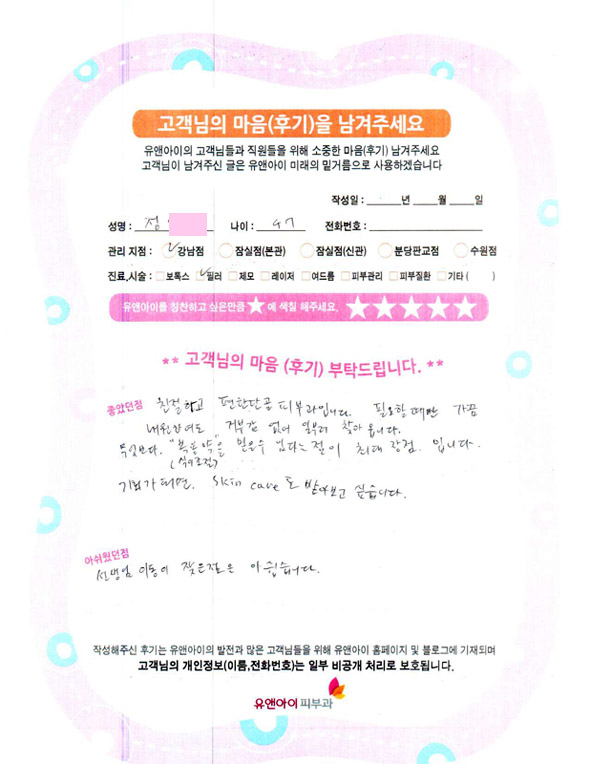 고객님의 마음(후기)을 남겨주세요
유앤아이의 고객님들과 직원들을 위해 소중한 마음(후기) 남겨주세요
고객님이 남겨주신 글은 유앤아이 미래의 밑거름으로 사용하겠습니다
작성일 : 년 월 일
성명 : 정 나이 : 47 전화번호 :
관리 지점 : 강남점 잠실점(본관) 잠실점(신관) 분당판교점 수원점
진료,시술 : 보톡스 필러 제모 레이저 여드름 피부관리 피부질환 기타 ( )
유앤아이를 칭찬하고 싶은만큼 ★ 에 색칠 해주세요. ★★★★★
** 고객님의 마음 (후기) 부탁드립니다. **
좋았던점 친절하고 편한단골 피부과입니다. 필요할때만 가끔
내원하여도 거부감 없어 일부러 찾아 옵니다.
무엇보다. "복용약"을 믿을수 있다는 점이 최대 장점. 입니다.
기회가 되면. skin care도 받아보고 싶습니다.
아쉬웠던점
선생님 이동이 잦은점은 아쉽습니다.
작성해주신 후기는 유앤아이의 발전과 많은 고객님들을 위해 유앤아이 홈페이지 및 블로그에 기재되며
고객님의 개인정보(이름,전화번호)는 일부 비공개 처리로 보호됩니다.
유앤아이 피부과